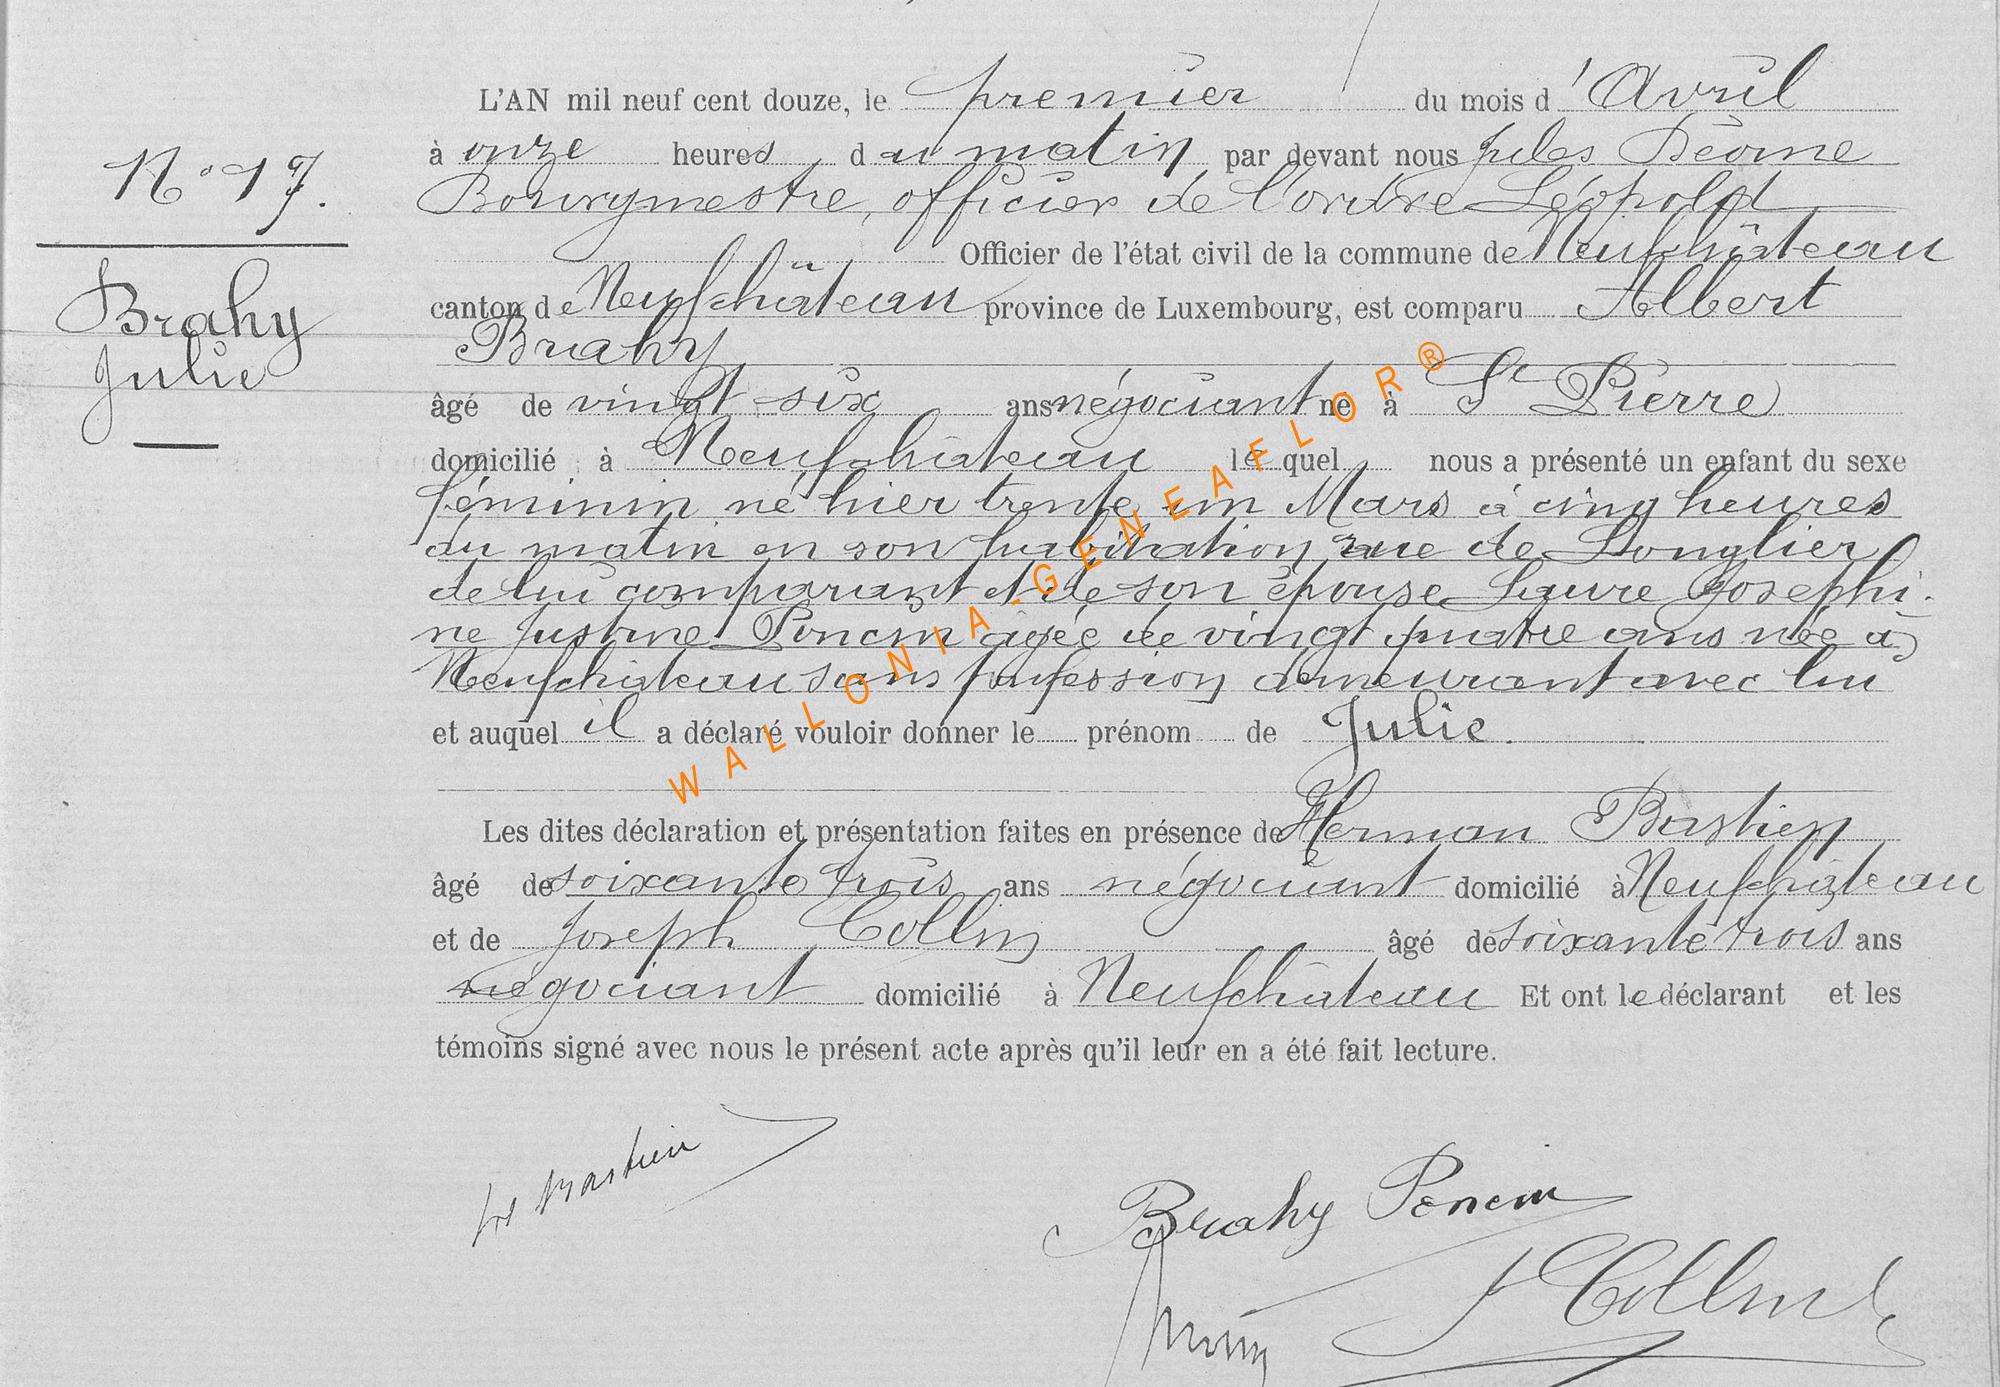 L'AN mil neuf cent douze, le premier du mois d'Avril
N° 17.
à onze heures du matin par devant nous Jules
Bourgmestre, officier de l'ordre Léopold
Officier de l'état civil de la commune de Neufchâteau
Brahy
Julie
canton de Neufchâteau province de Luxembourg, est comparu Albert
Brahy
âgé de vingt six ans négociant né à St Pierre
domicilié à Neufchâteau lequel nous a présenté un enfant du sexe
féminin né hier trente un Mars à cinq heures
du matin en son habitation rue de Longlier
de lui comparant et de son épouse Laure Josephi-
ne Justine Poncin âgée de vingt quatre ans née à
Neufchâteau sans profession demeurant avec lui
et auquel il a déclaré vouloir donner le prénom de Julie.
Les dites déclaration et présentation faites en présence de Herman Bastien
âgé de soixante trois ans négociant domicilié à Neufchâteau
et de Joseph Collin âgé de soixante trois ans
négociant domicilié à Neufchâteau Et ont le déclarant et les
témoins signé avec nous le présent acte après qu'il leur en a été fait lecture.
Bastien
Brahy Poncin
J Collin
WALLONIA-GENEAFLOR®